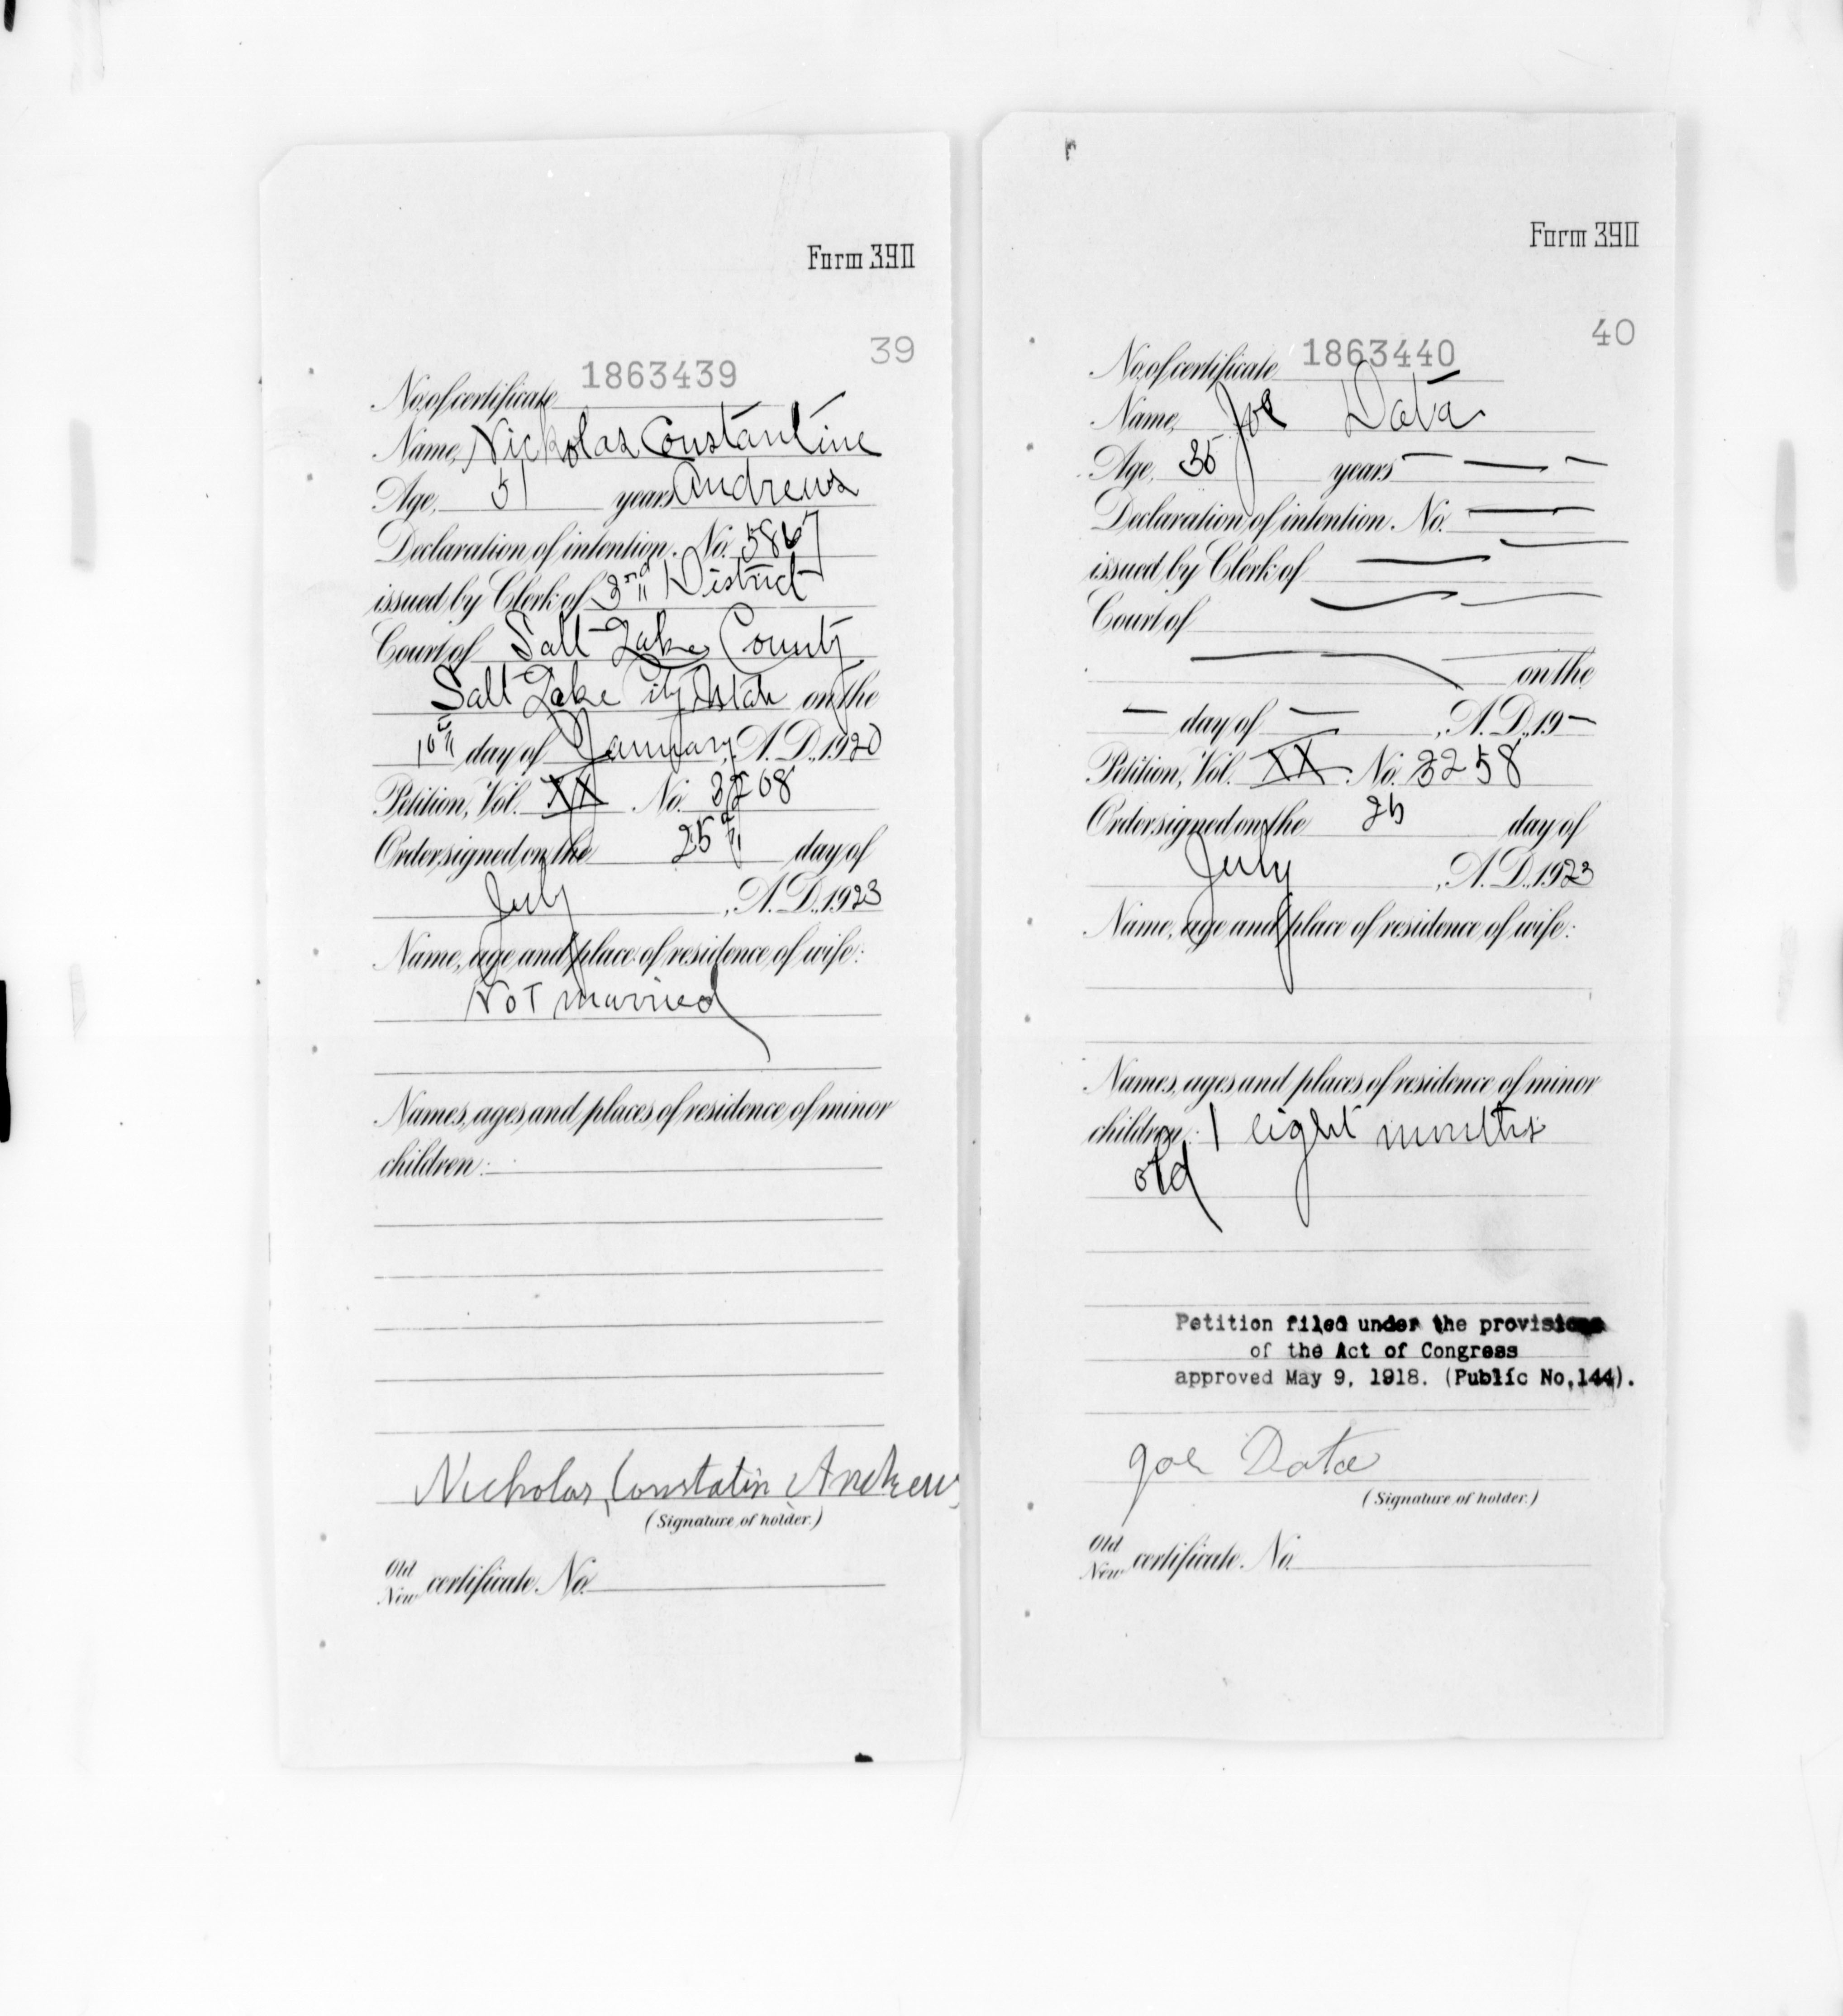 Form 390
39
No. of certificate 1863439
Name, Nickolas Constantine
Age, 51 years Andrews
Declaration of intention, No. 5867
issued by Clerk of 3rd District
Court of Salt Lake County
Salt Lake City Utah on the
day of January, A. D., 1920
Petition, Vol. XX No. 3208
Order signed on the 25th day of
July, A. D., 1923
Name, age and place of residence of wife:
Not married
Names, ages and places of residence of minor
children:
Nicholas Constatin Andrews
(Signature of holder.)
Old
New certificate No.
Form 390
40
No. of certificate 1863440
Name, Joe Data
Age, 35 years — — —
Declaration of intention, No. —
issued by Clerk of — —
Court of — —
— on the
— day of —, A. D., 19—
Petition, Vol. XX No. 3258
Order signed on the 25 day of
July, A. D., 1923
Name, age and place of residence of wife:
Names, ages and places of residence of minor
children: 1 eight months
old
Petition filed under the provisions
of the Act of Congress
approved May 9, 1918. (Public No.144).
Joe Data
(Signature of holder.)
Old
New certificate No.